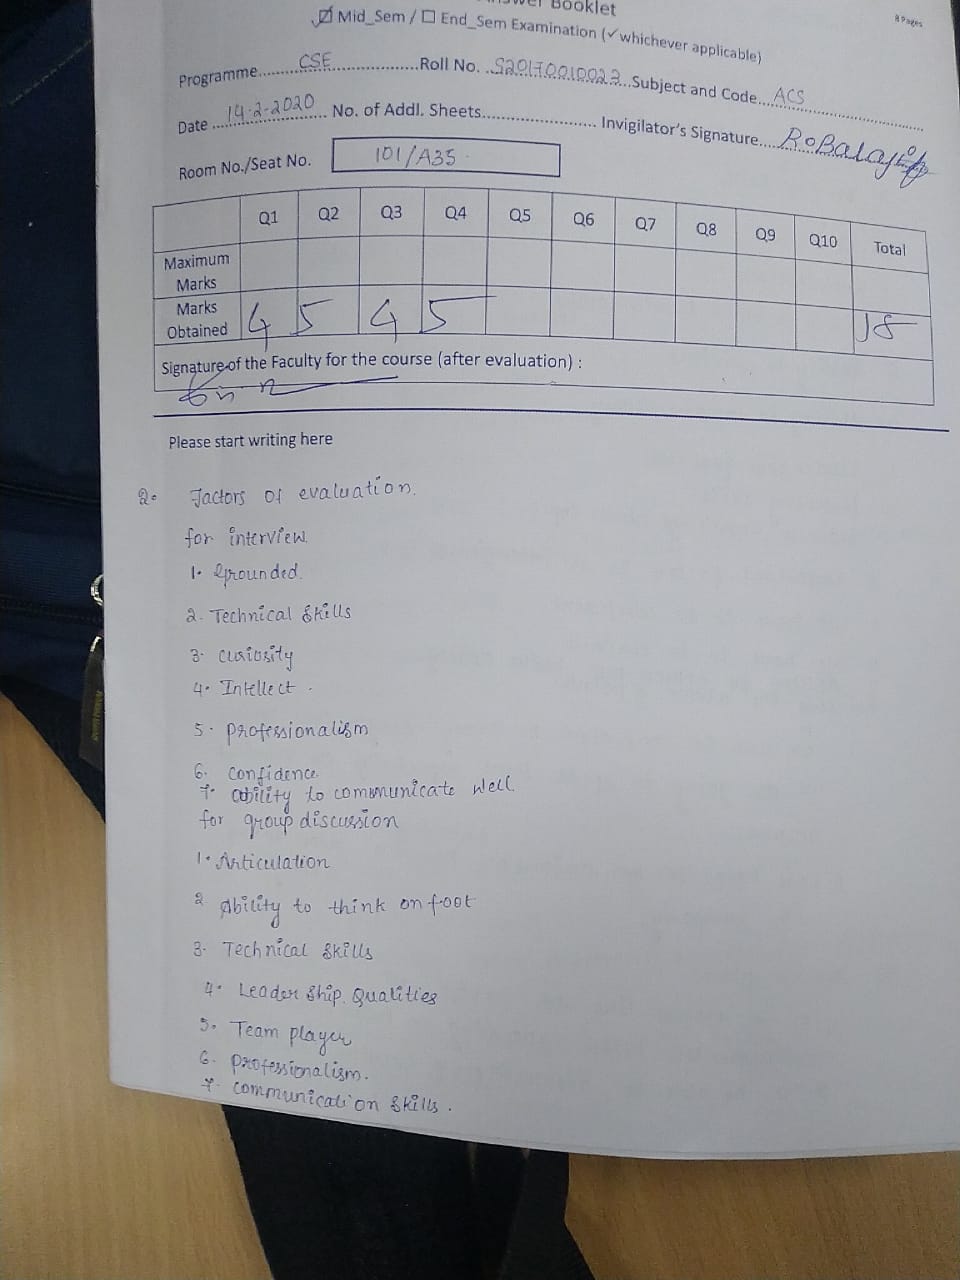 Booklet
8 Pages
☑ Mid_Sem / ☐ End_Sem Examination (✓ whichever applicable)
Programme.....CSE.....Roll No. ..S20170010023...Subject and Code....ACS.....
Date ..14-2-2020.. No. of Addl. Sheets............ Invigilator's Signature....
Room No./Seat No. 101/A35
Q1 Q2 Q3 Q4 Q5 Q6 Q7 Q8 Q9 Q10 Total
Maximum
Marks
Marks
Obtained 4 5 4 5 18
Signature of the Faculty for the course (after evaluation) :
Please start writing here
2. Factors of evaluation.
for interview.
1. Grounded.
2. Technical Skills
3. curiosity
4. Intellect.
5. professionalism
6. Confidence.
7. ability to communicate well.
for group discussion
1. Articulation
2 Ability to think on foot
3. Technical Skills
4. Leader Ship Qualities
5. Team player
6. professionalism.
7. communication Skills.